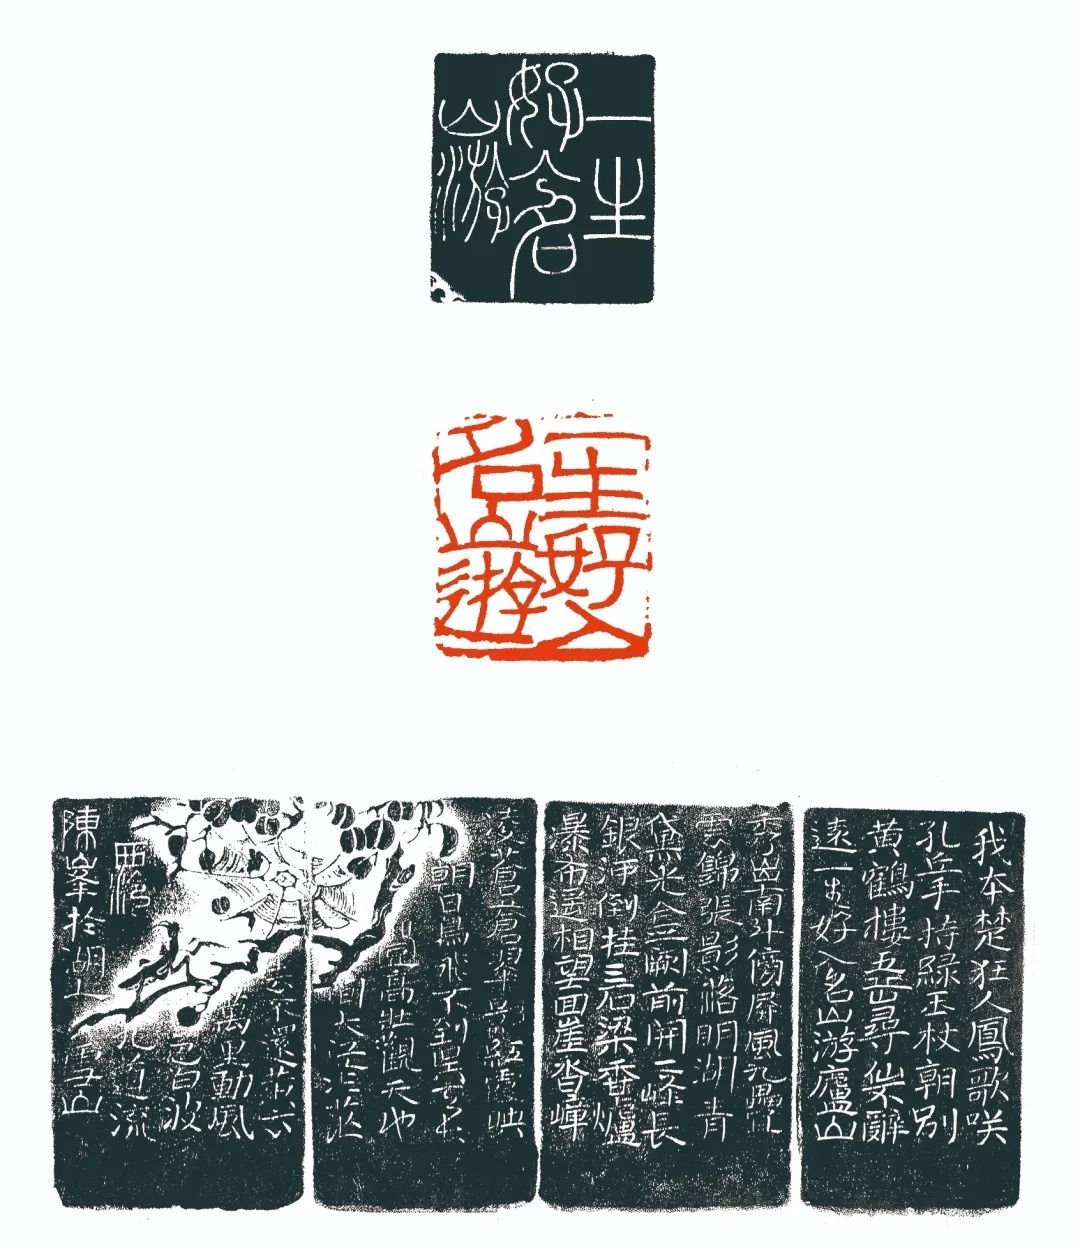 一生
好入名
山游
一生好入
名山遊
我本楚狂人鳳歌咲
孔丘手持緑玉杖朝別
黄鶴樓五岳尋仙不辭
遠一生好入名山游廬山
秀出南斗傍屏風九疊
雲錦張影落明湖青
黛光金闕前開二峰長
銀河倒挂三石梁香爐
暴布遥相望回崖沓嶂
蒼蒼翠影紅霞映
朝日鳥飛不到吳天長
登高壯觀天地
間大江茫茫
去不還黄雲
萬里動風
色白波
九道流
雪山
西泠
陳峯於湖上